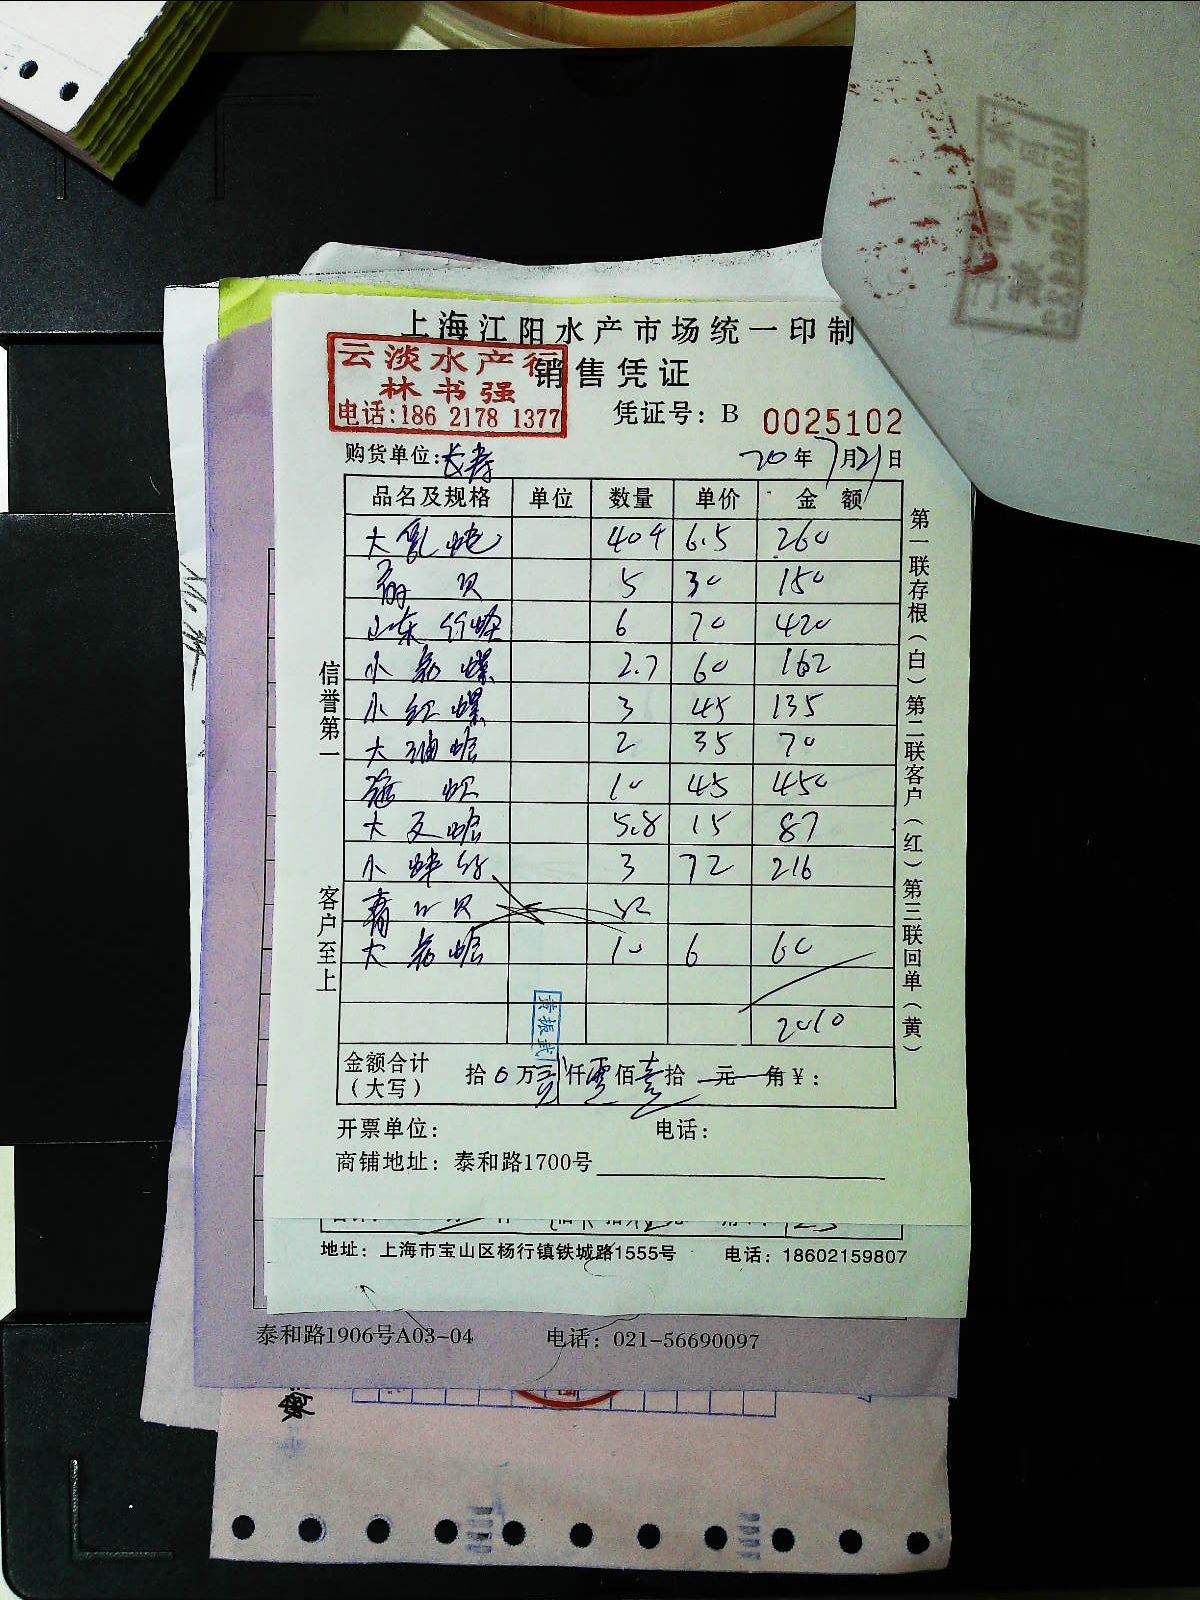 上海江阳水产市场统一印制
云淡水产行
销售凭证
林书强
电话:186 2178 1377
凭证号: B 0025102
购货单位:长寿 20年7月21日
品名及规格 单位 数量 单价 金 额
大 40个 6.5 260
贝 5 30 150
山东竹蛏 6 70 420
小 螺 2.7 60 162
小红螺 3 45 135
大油蛤 2 35 70
10 45 450
大文蛤 5.8 15 87
小 3 72 216
贝
大 蛤 10 6 60
2010
金额合计(大写) 拾0万贰仟零佰壹拾 元 角¥:
黄振武
开票单位: 电话:
商铺地址: 泰和路1700号
信誉第一
客户至上
第一联存根(白)第二联客户(红)第三联回单(黄)
地址: 上海市宝山区杨行镇铁城路1555号 电话: 18602159807
泰和路1906号A03-04 电话: 021-56690097